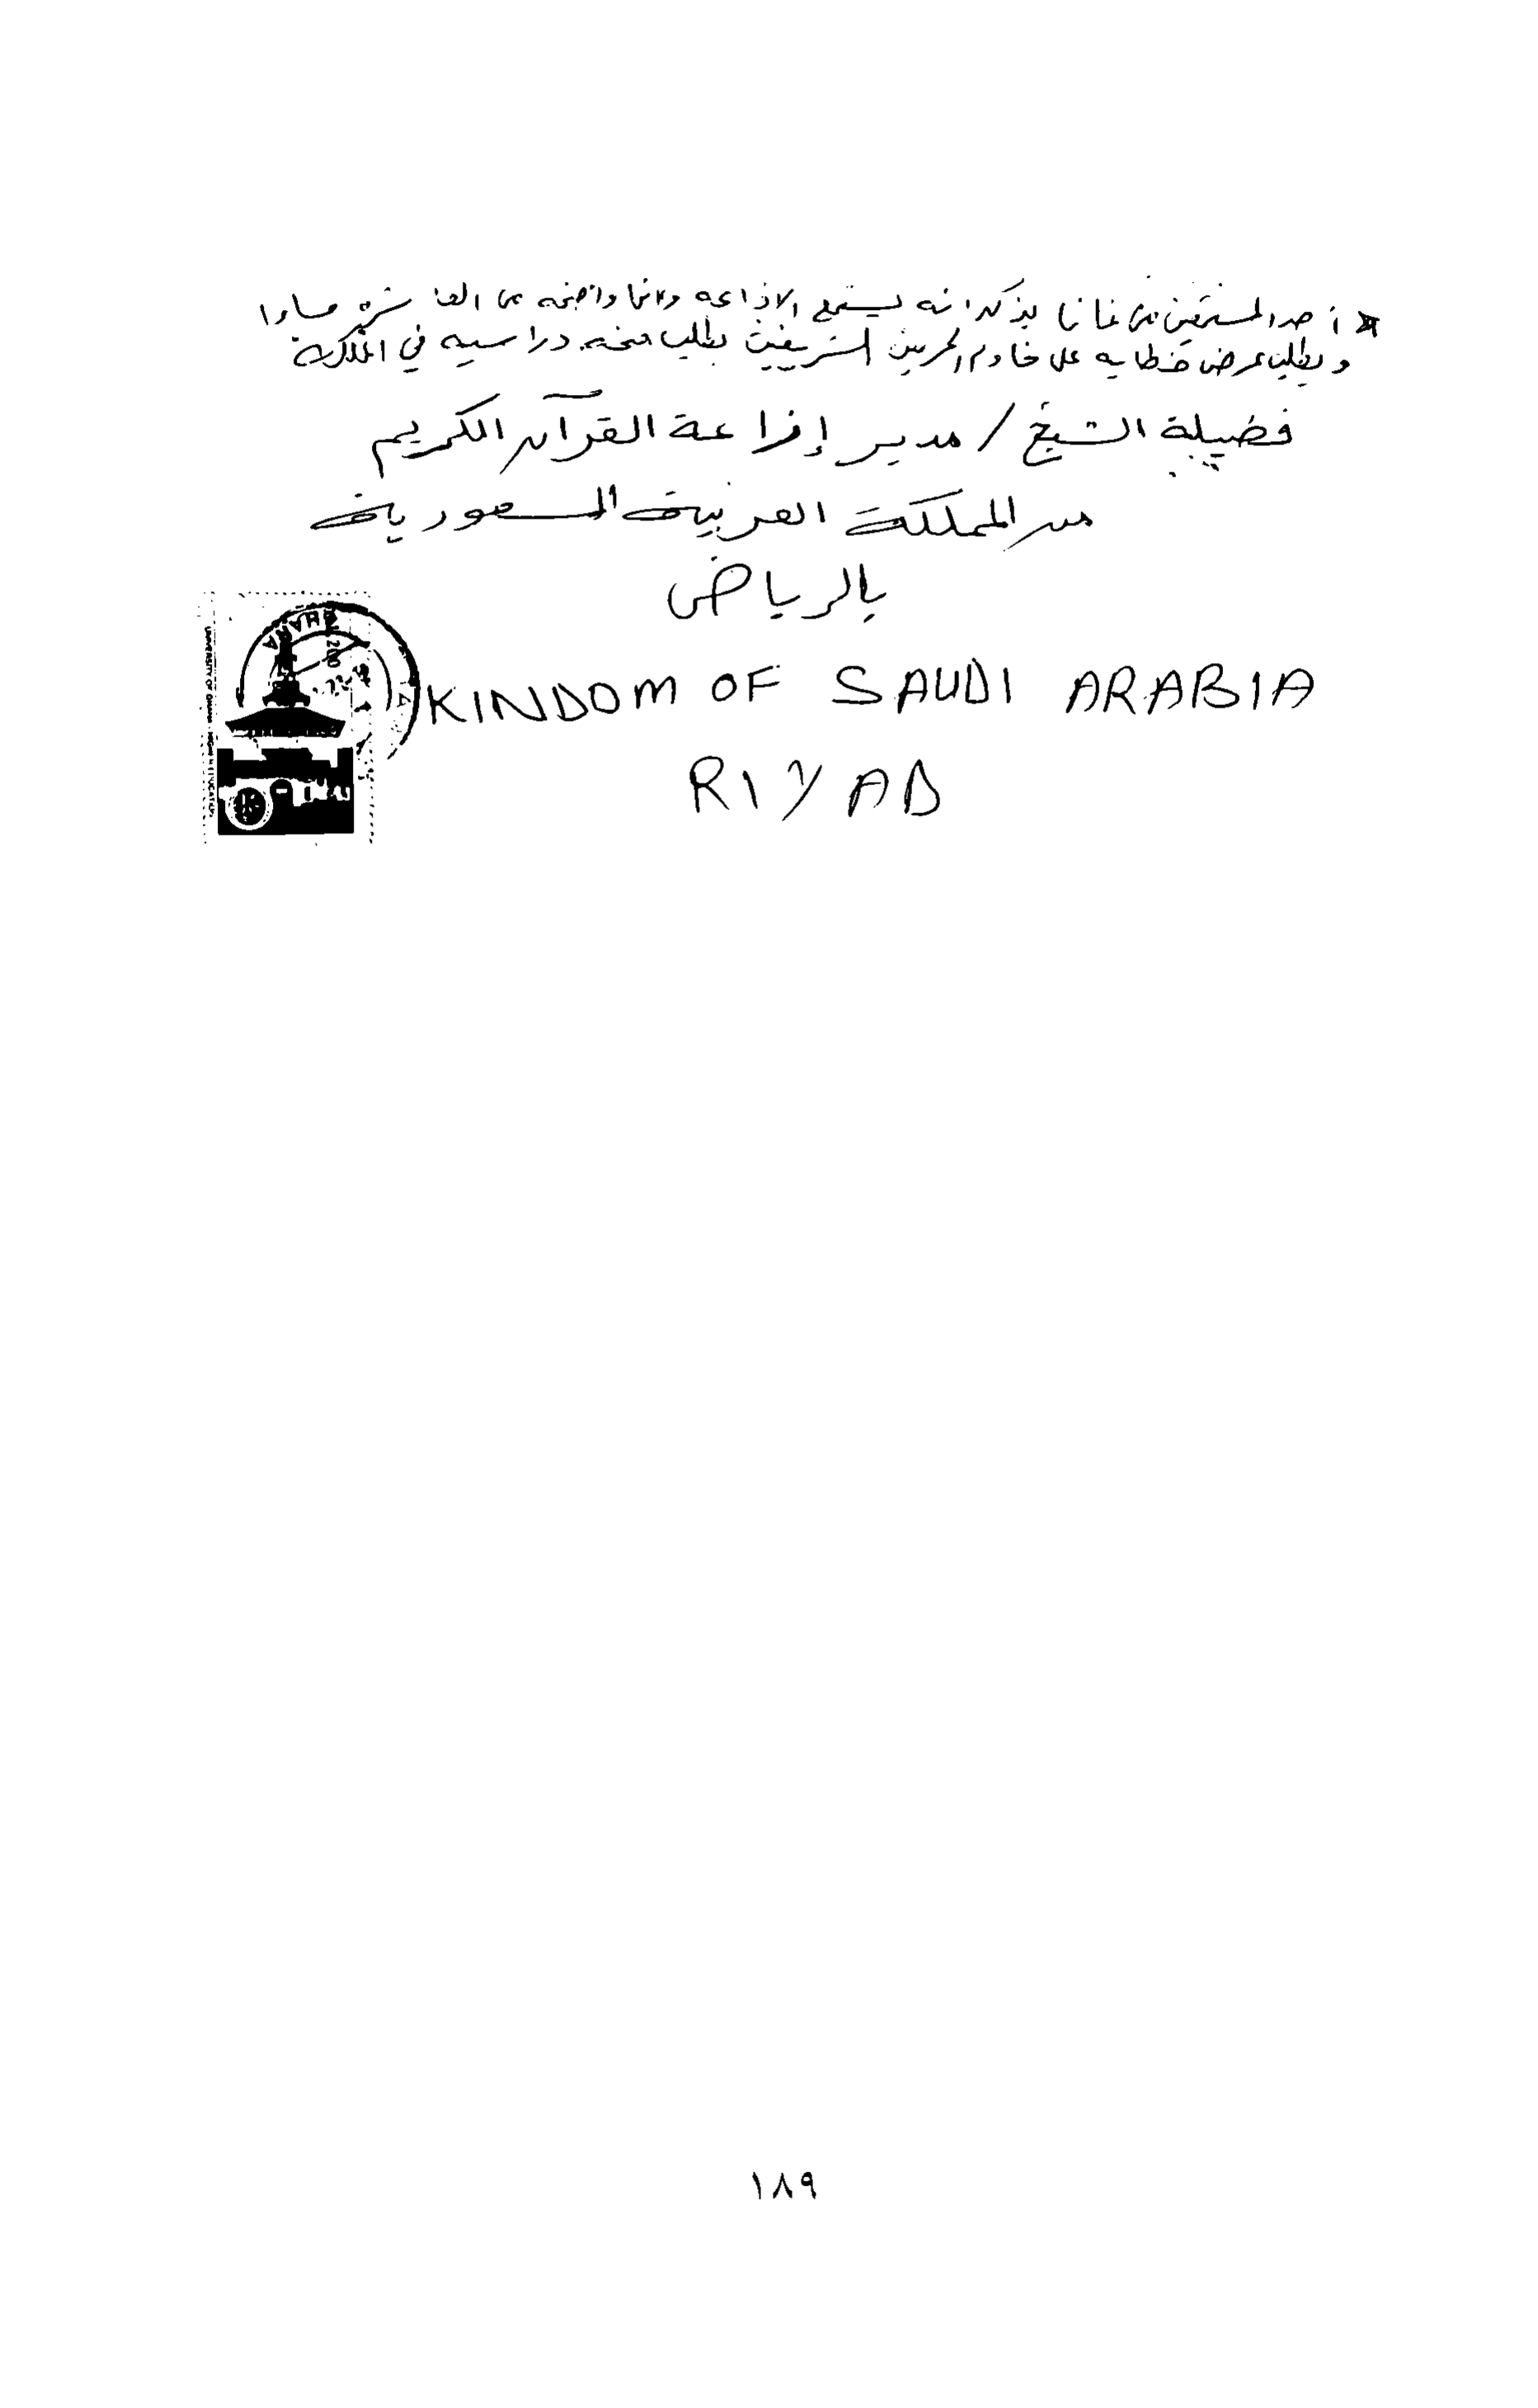 * أحد المستمعين من غانا يذكر انه يستمع الاذاعه دائما واضحه من العاشرة مساءا
ويطلب عرض خطابه على خادم الحرمين الشريفين بطلب منحه دراسيه في المملكة
فضيلة الشيخ / مدير إذاعة القرآن الكريم
من المملكة العربية السعودية
بالرياض
GHANA
UNIVERSITY OF GHANA
KINDOM OF SAUDI ARABIA
RIYAD
١٨٩